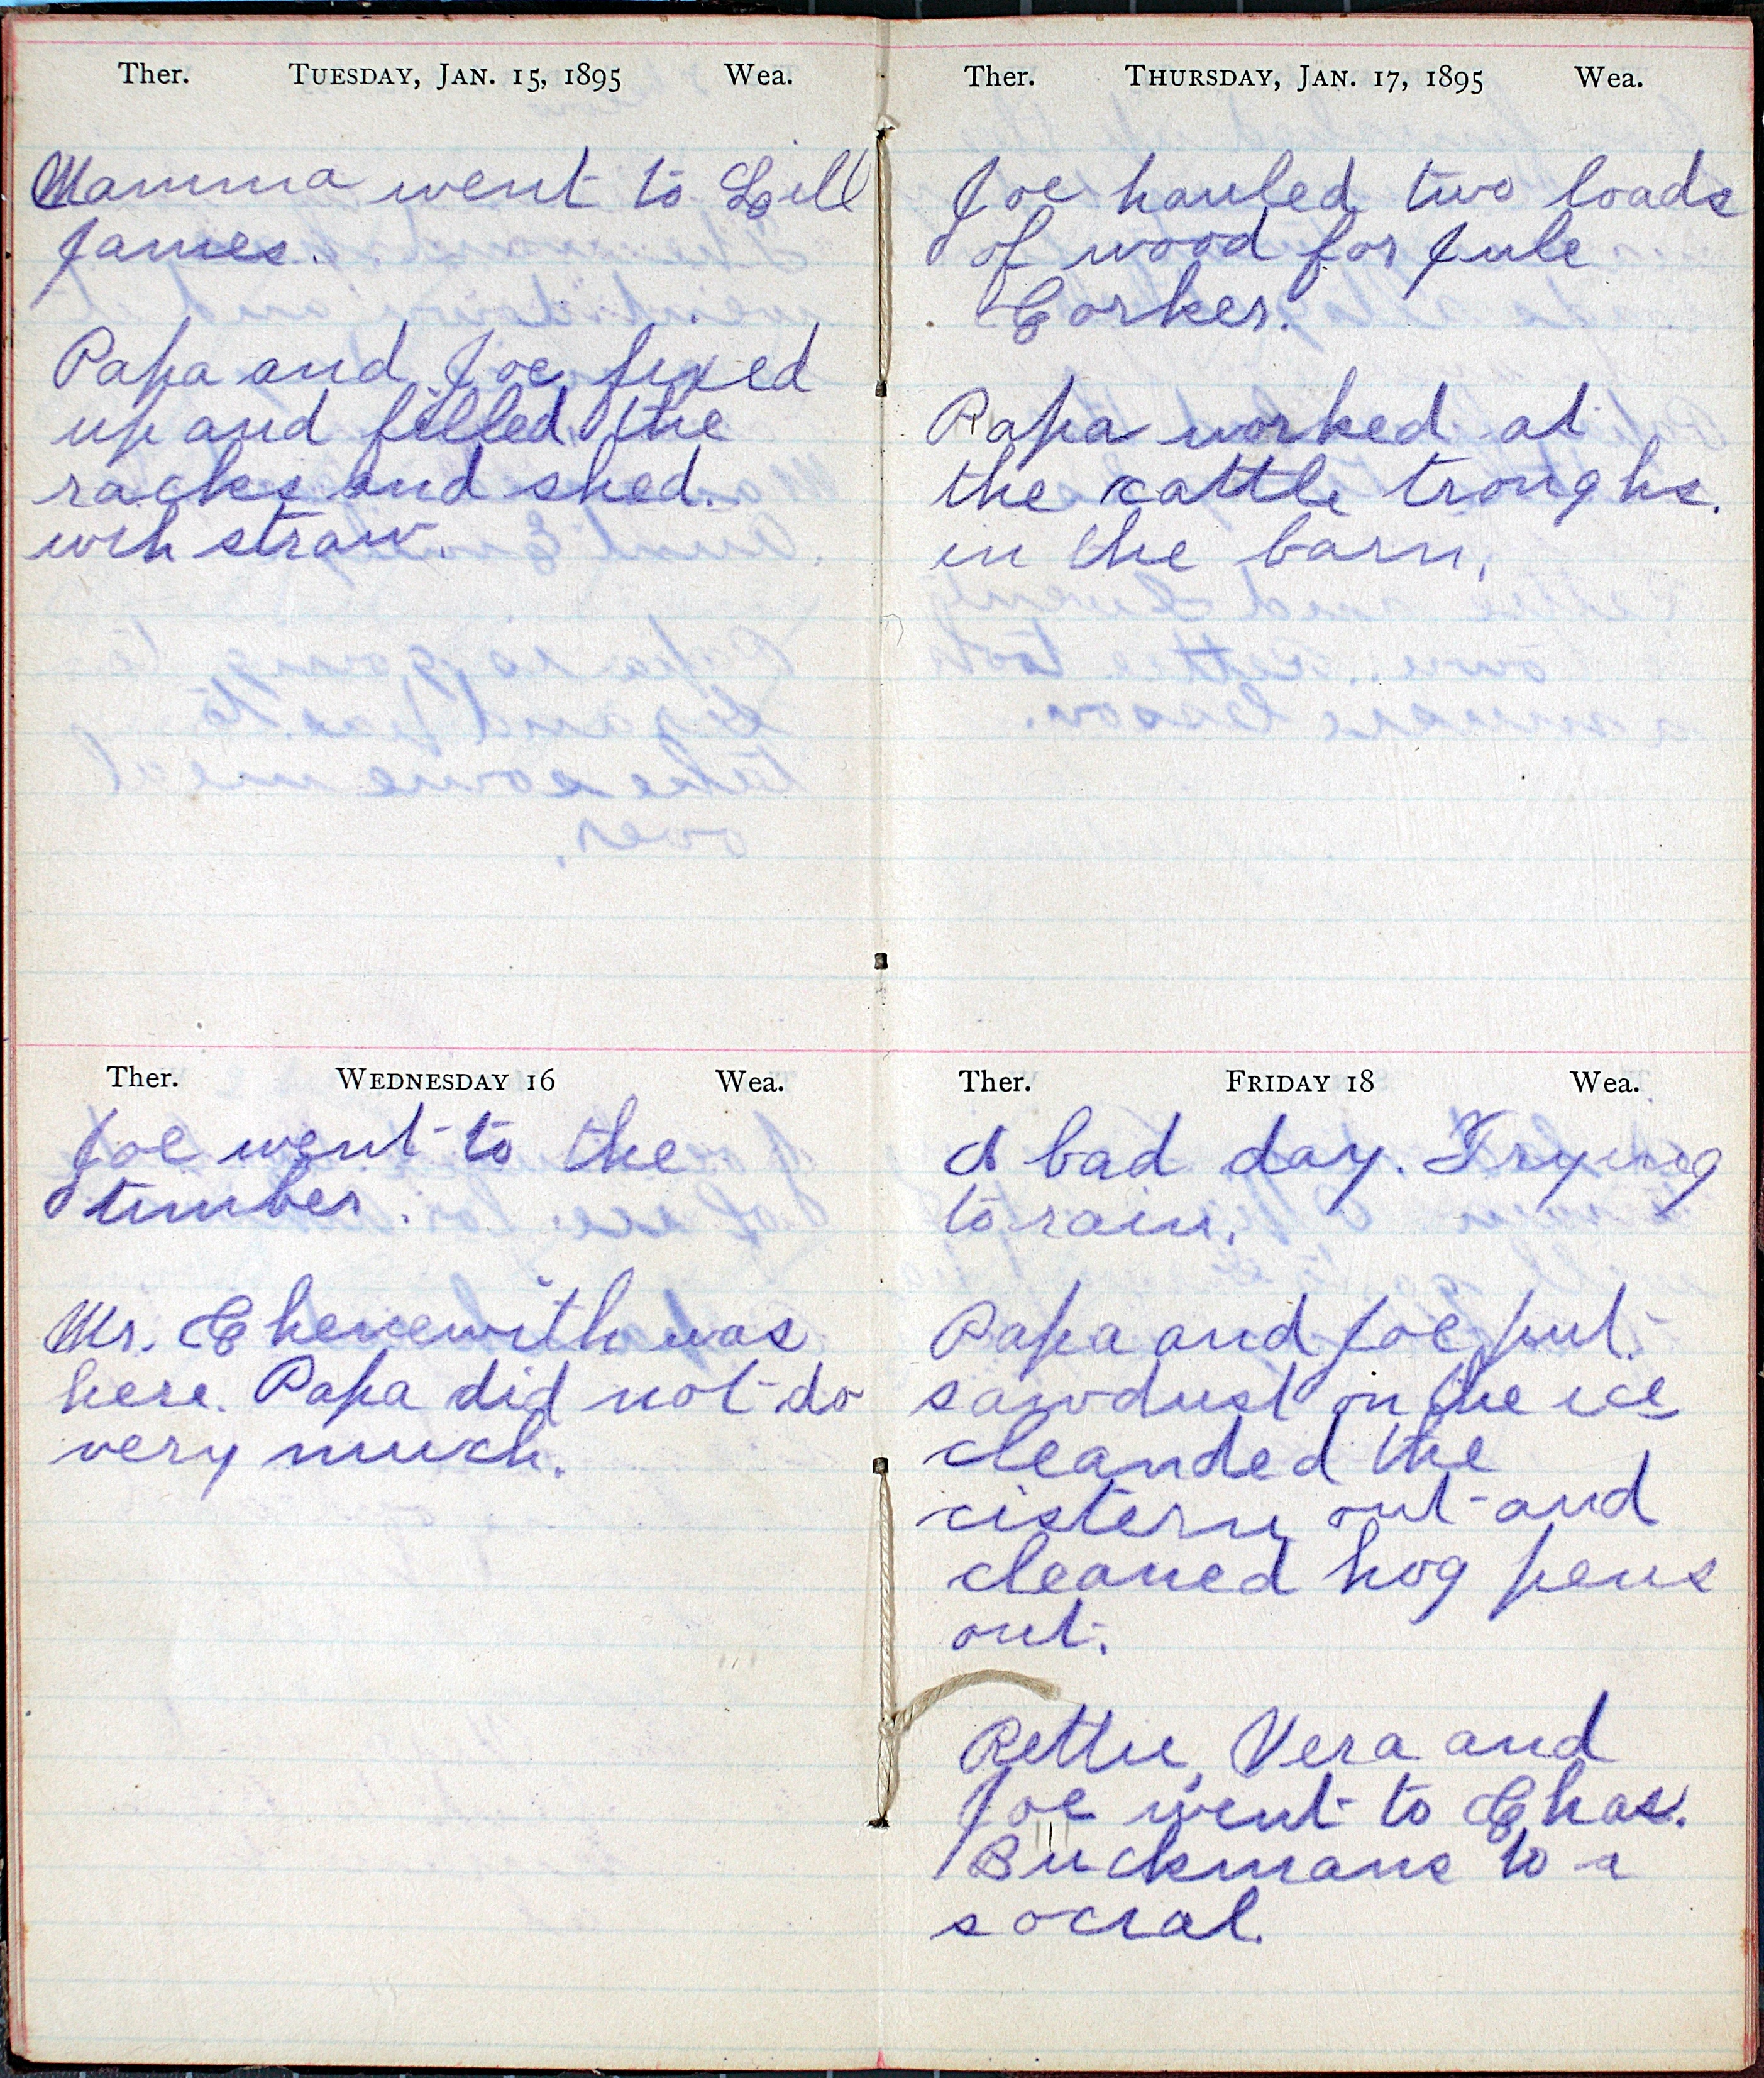 Ther. Tuesday, Jan. 15, 1895 Wea.
Mamma went to Lill
James.
Papa and Joe fixed
up and filled the
racks and shed.
wih straw.
Ther. Wednesday 16 Wea.
Joe went to the
timber.
Mr. Chenewith was
here. Papa did not do
very much.
Ther. Thursday, Jan. 17, 1895 Wea.
Joe hauled two loads
of wood for Jule
Corker.
Papa worked at
the cattle troughs.
in the barn.
Ther. Friday 18 Wea.
A bad day. Trying
to rain.
Papa and Joe put
sawdust on the ice
cleanded the
cistern out and
cleaned hog pens
out.
Rettie, Vera and
Joe went to Chas.
Buckmans to a
social.